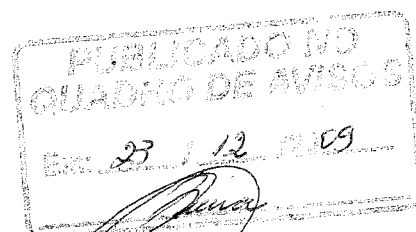 PUBLICADO NO
QUADRO DE AVISOS
Em: 23 / 12 / 09